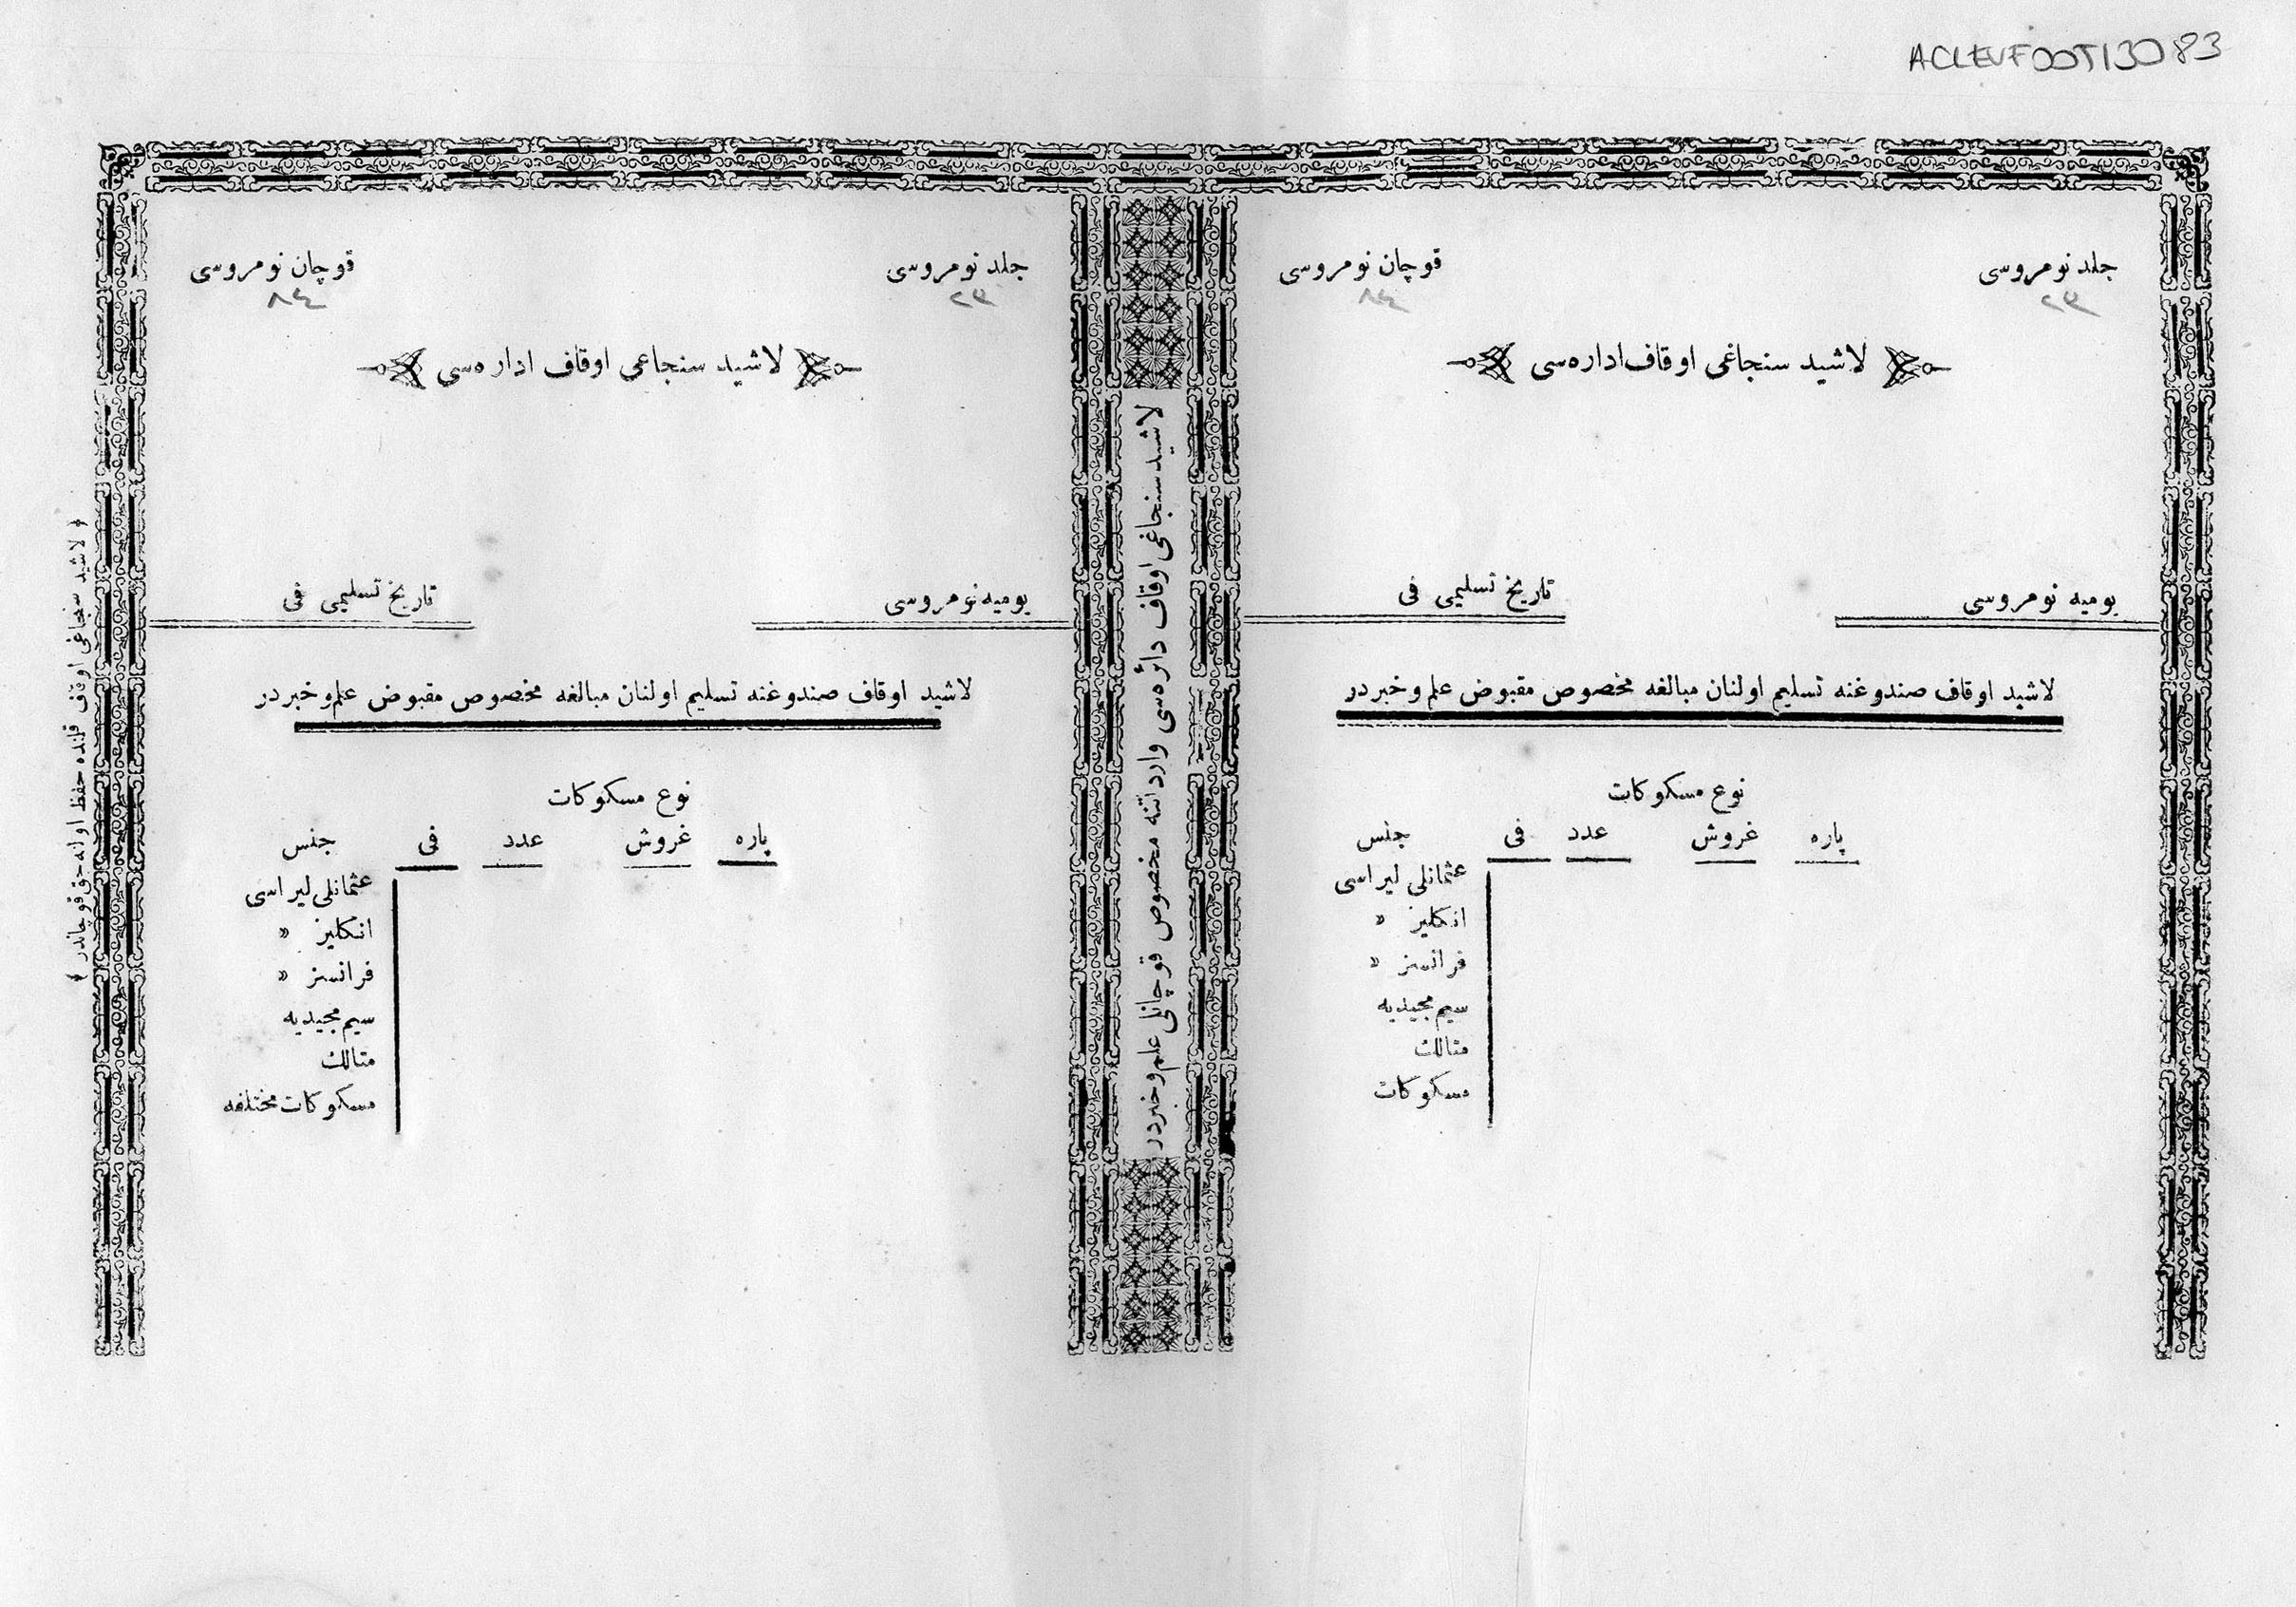 ACLEVF00T13083
جلد نومروسی
قوچان نومروسی
٢٣
٨٤
لاشید سنجاغی اوقاف اداره‌سی
یومیه نومروسی
تاریخ تسلیمی فی
لاشید اوقاف صندوغنه تسلیم اولنان مبالغه مخصوص مقبوض علم و خبردر
نوع مسکوکات
پاره غروش عدد فی جنس
عثمانلی لیراسی
انکلیز »
فرانسز »
سیم مجیدیه
متالك
مسکوکات
لاشید سنجاغی اوقاف دائره‌سی وارداتنه مخصوص قوچانلی علم و خبردر
جلد نومروسی
قوچان نومروسی
٢٣
٨٤
لاشید سنجاعی اوقاف اداره‌سی
یومیه نومروسی
تاریخ تسلیمی فی
لاشید اوقاف صندوغنه تسلیم اولنان مبالغه مخصوص مقبوض علم و خبردر
نوع مسکوکات
پاره غروش عدد فی جنس
عثمانلی لیراسی
انکلیز »
فرانسز »
سیم مجیدیه
متالك
مسکوکات مختلفه
لاشید سنجاغی اوقاف قلنده حفظ اوله‌جق قوچاندر